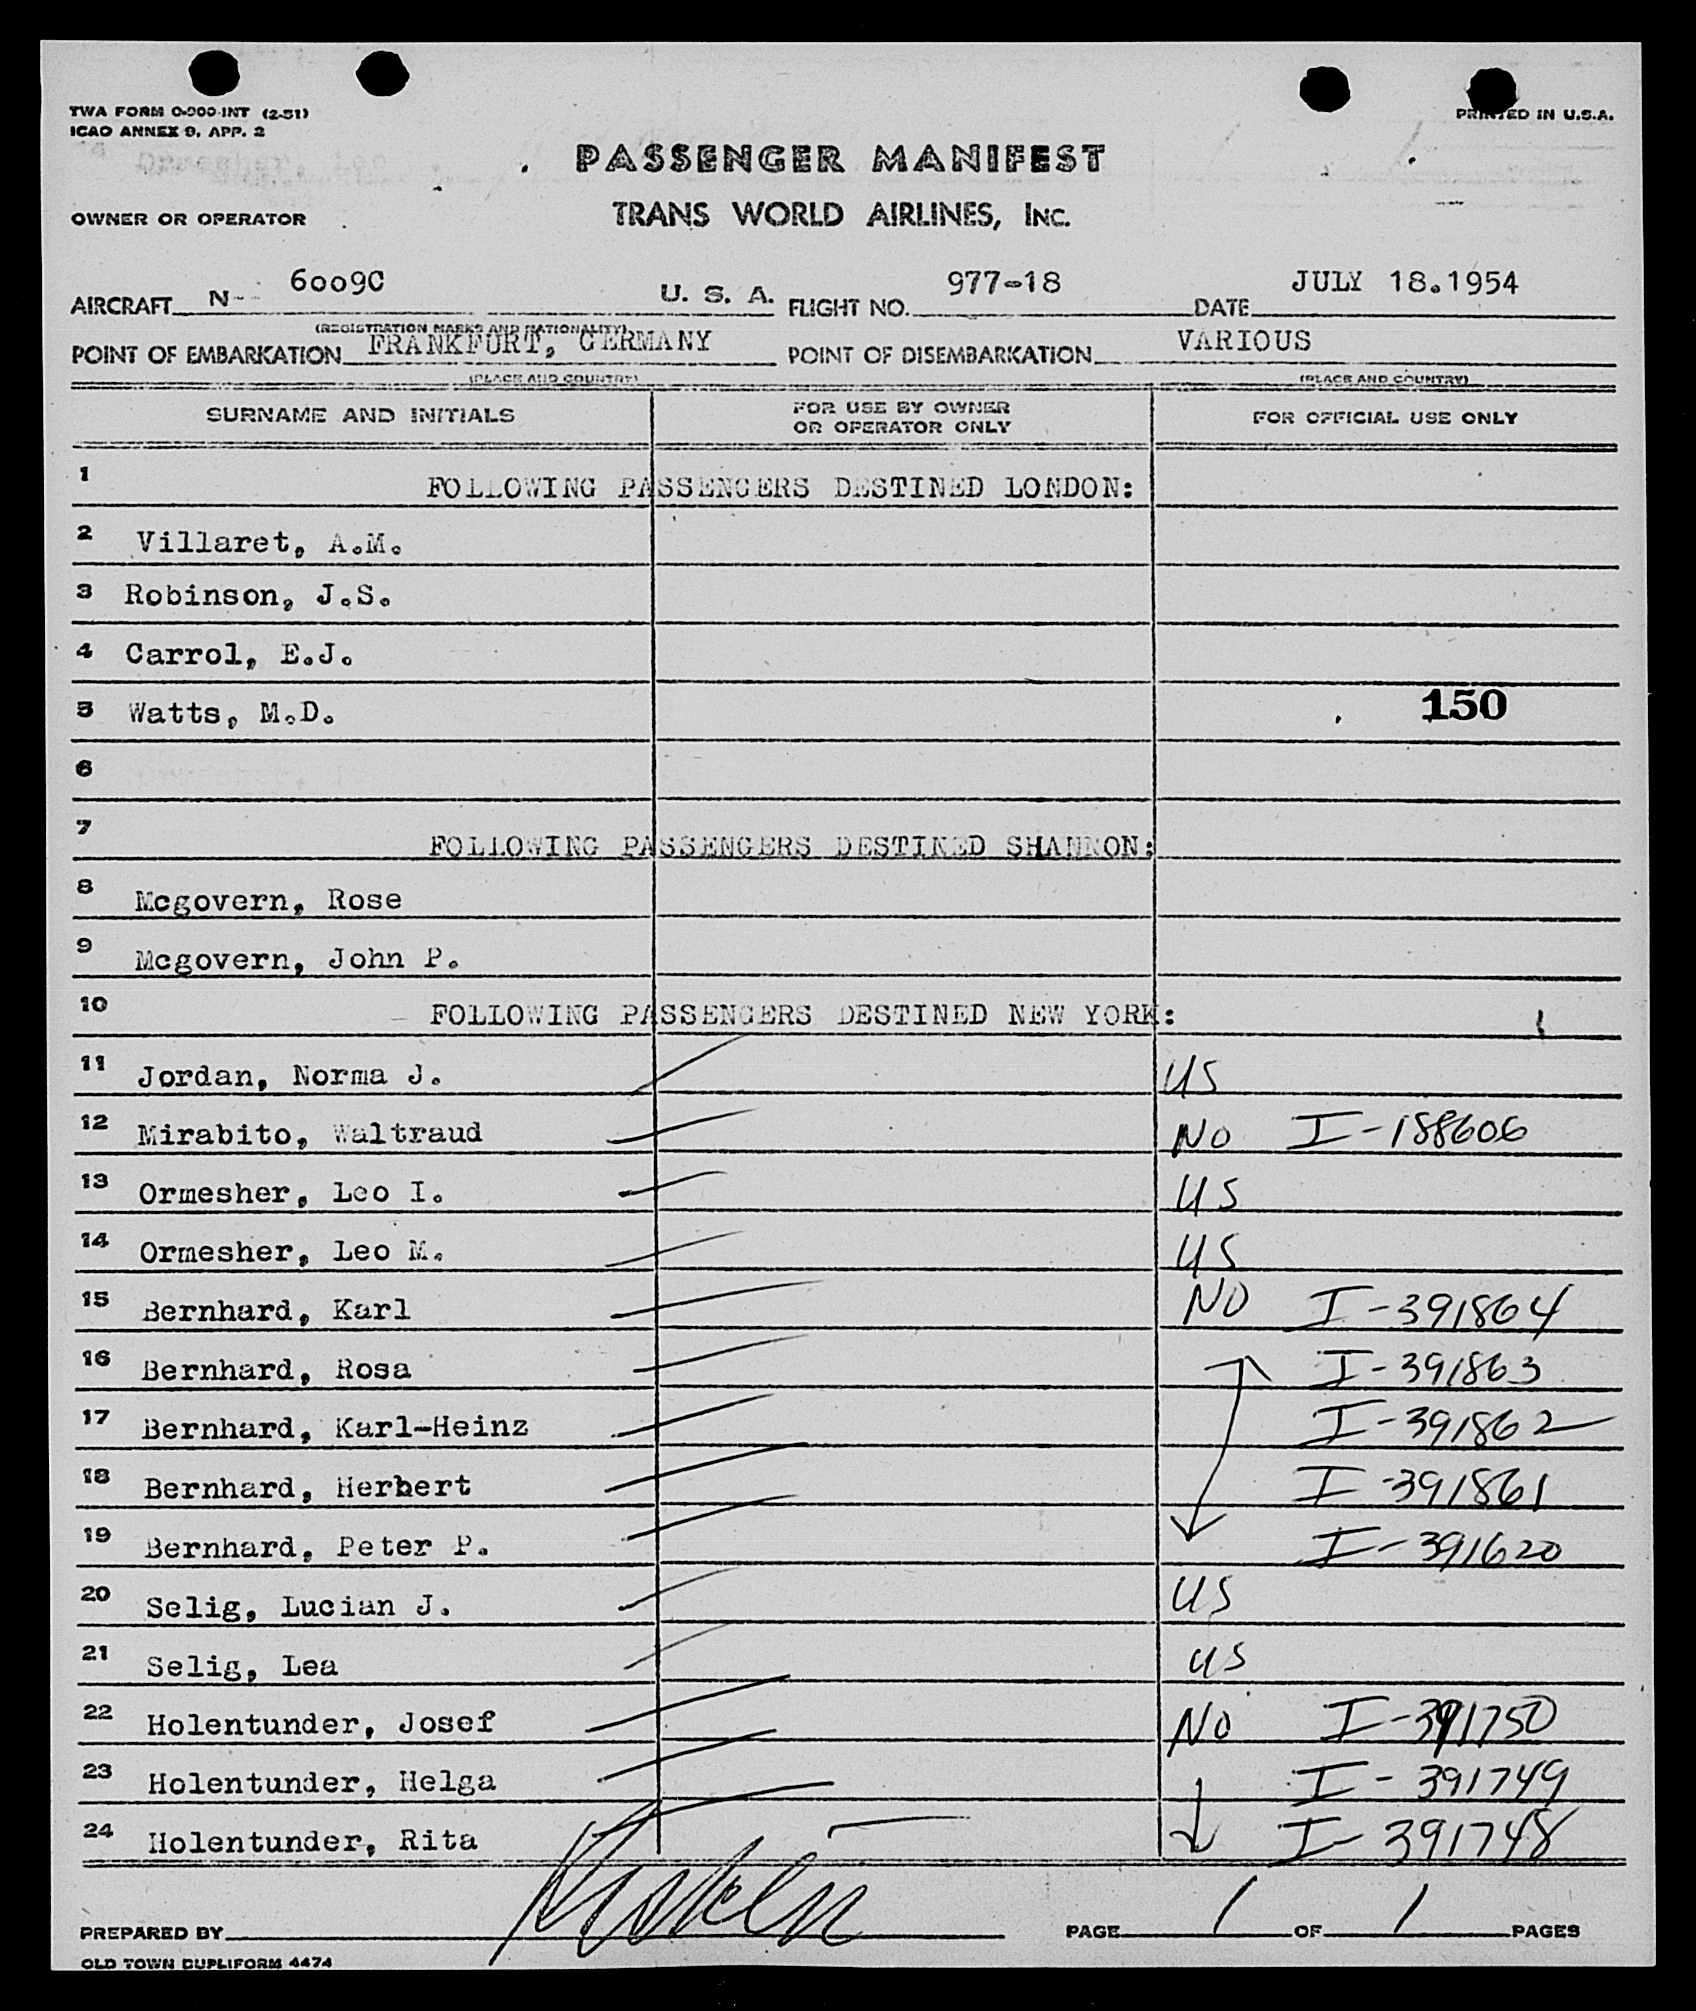 TWA FORM O-900-INT (2-51)
ICAO ANNEX 9, APP. 2
PRINTED IN U.S.A.
PASSENGER MANIFEST
OWNER OR OPERATOR TRANS WORLD AIRLINES, INC.
AIRCRAFT N- 6009C U. S. A. FLIGHT NO. 977-18 DATE JULY 18.1954
(REGISTRATION MARKS AND NATIONALITY)
POINT OF EMBARKATION FRANKFURT, GERMANY POINT OF DISEMBARKATION VARIOUS
(PLACE AND COUNTRY) (PLACE AND COUNTRY)
SURNAME AND INITIALS FOR USE BY OWNER OR OPERATOR ONLY FOR OFFICIAL USE ONLY
1 FOLLOWING PASSENGERS DESTINED LONDON:
2 Villaret, A.M.
3 Robinson, J.S.
4 Carrol, E.J.
5 Watts, M.D. 150
6
7 FOLLOWING PASSENGERS DESTINED SHANNON:
8 Mcgovern, Rose
9 Mcgovern, John P.
10 FOLLOWING PASSENGERS DESTINED NEW YORK:
11 Jordan, Norma J. US
12 Mirabito, Waltraud NO I-188606
13 Ormesher, Leo I. US
14 Ormesher, Leo M. US
15 Bernhard, Karl NO I-391864
16 Bernhard, Rosa I-391863
17 Bernhard, Karl-Heinz I-391862
18 Bernhard, Herbert I-391861
19 Bernhard, Peter P. I-391620
20 Selig, Lucian J. US
21 Selig, Lea US
22 Holentunder, Josef NO I-391750
23 Holentunder, Helga I-391749
24 Holentunder, Rita I-391748
PREPARED BY PAGE 1 OF 1 PAGES
OLD TOWN DUPLIFORM 4474